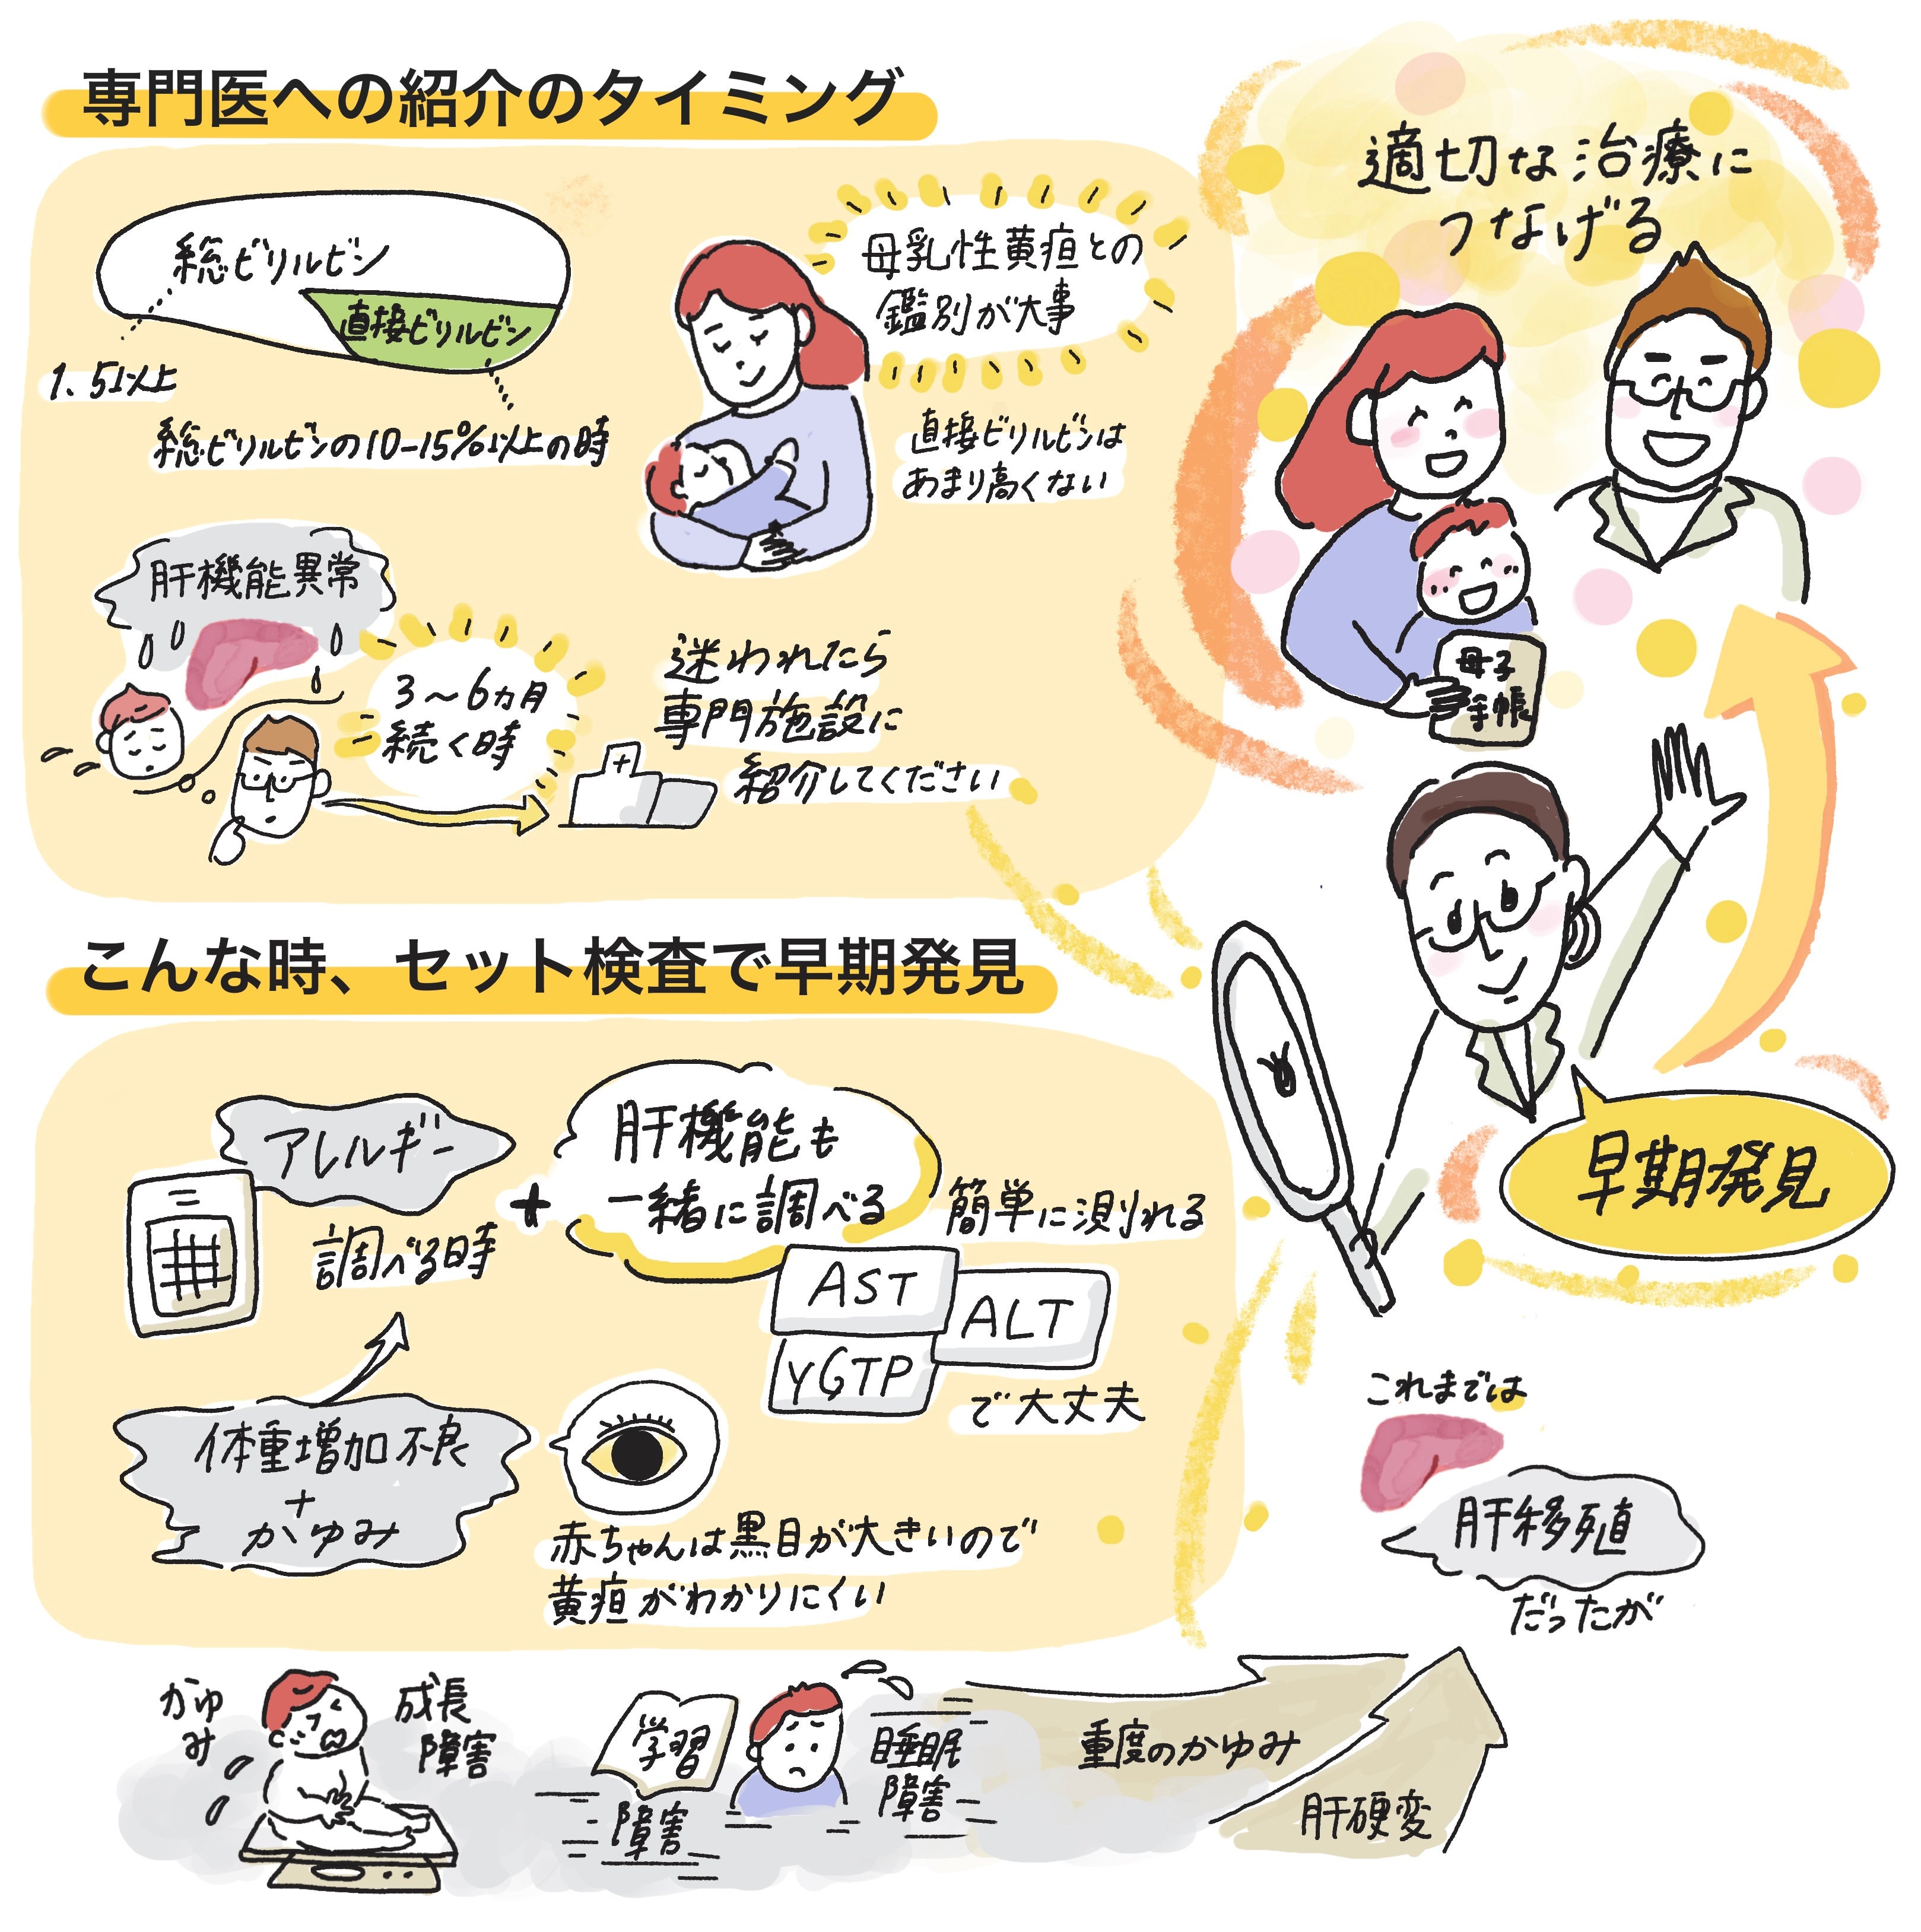 専門医への紹介のタイミング
総ビリルビン
直接ビリルビン
1.5以上
総ビリルビンの10-15%以上の時
母乳性黄疸との
鑑別が大事
直接ビリルビンは
あまり高くない
肝機能異常
3〜6ヵ月
続く時
迷われたら
専門施設に
紹介してください
適切な治療に
つなげる
母子
手帳
早期発見
こんな時、セット検査で早期発見
アレルギー
調べる時
+
肝機能も
一緒に調べる
簡単に測れる
AST
ALT
γGTP
で大丈夫
体重増加不良
+
かゆみ
赤ちゃんは黒目が大きいので
黄疸がわかりにくい
これまでは
肝移植
だったが
かゆ
み
成長
障害
学習
障害
睡眠
障害
重度のかゆみ
肝硬変